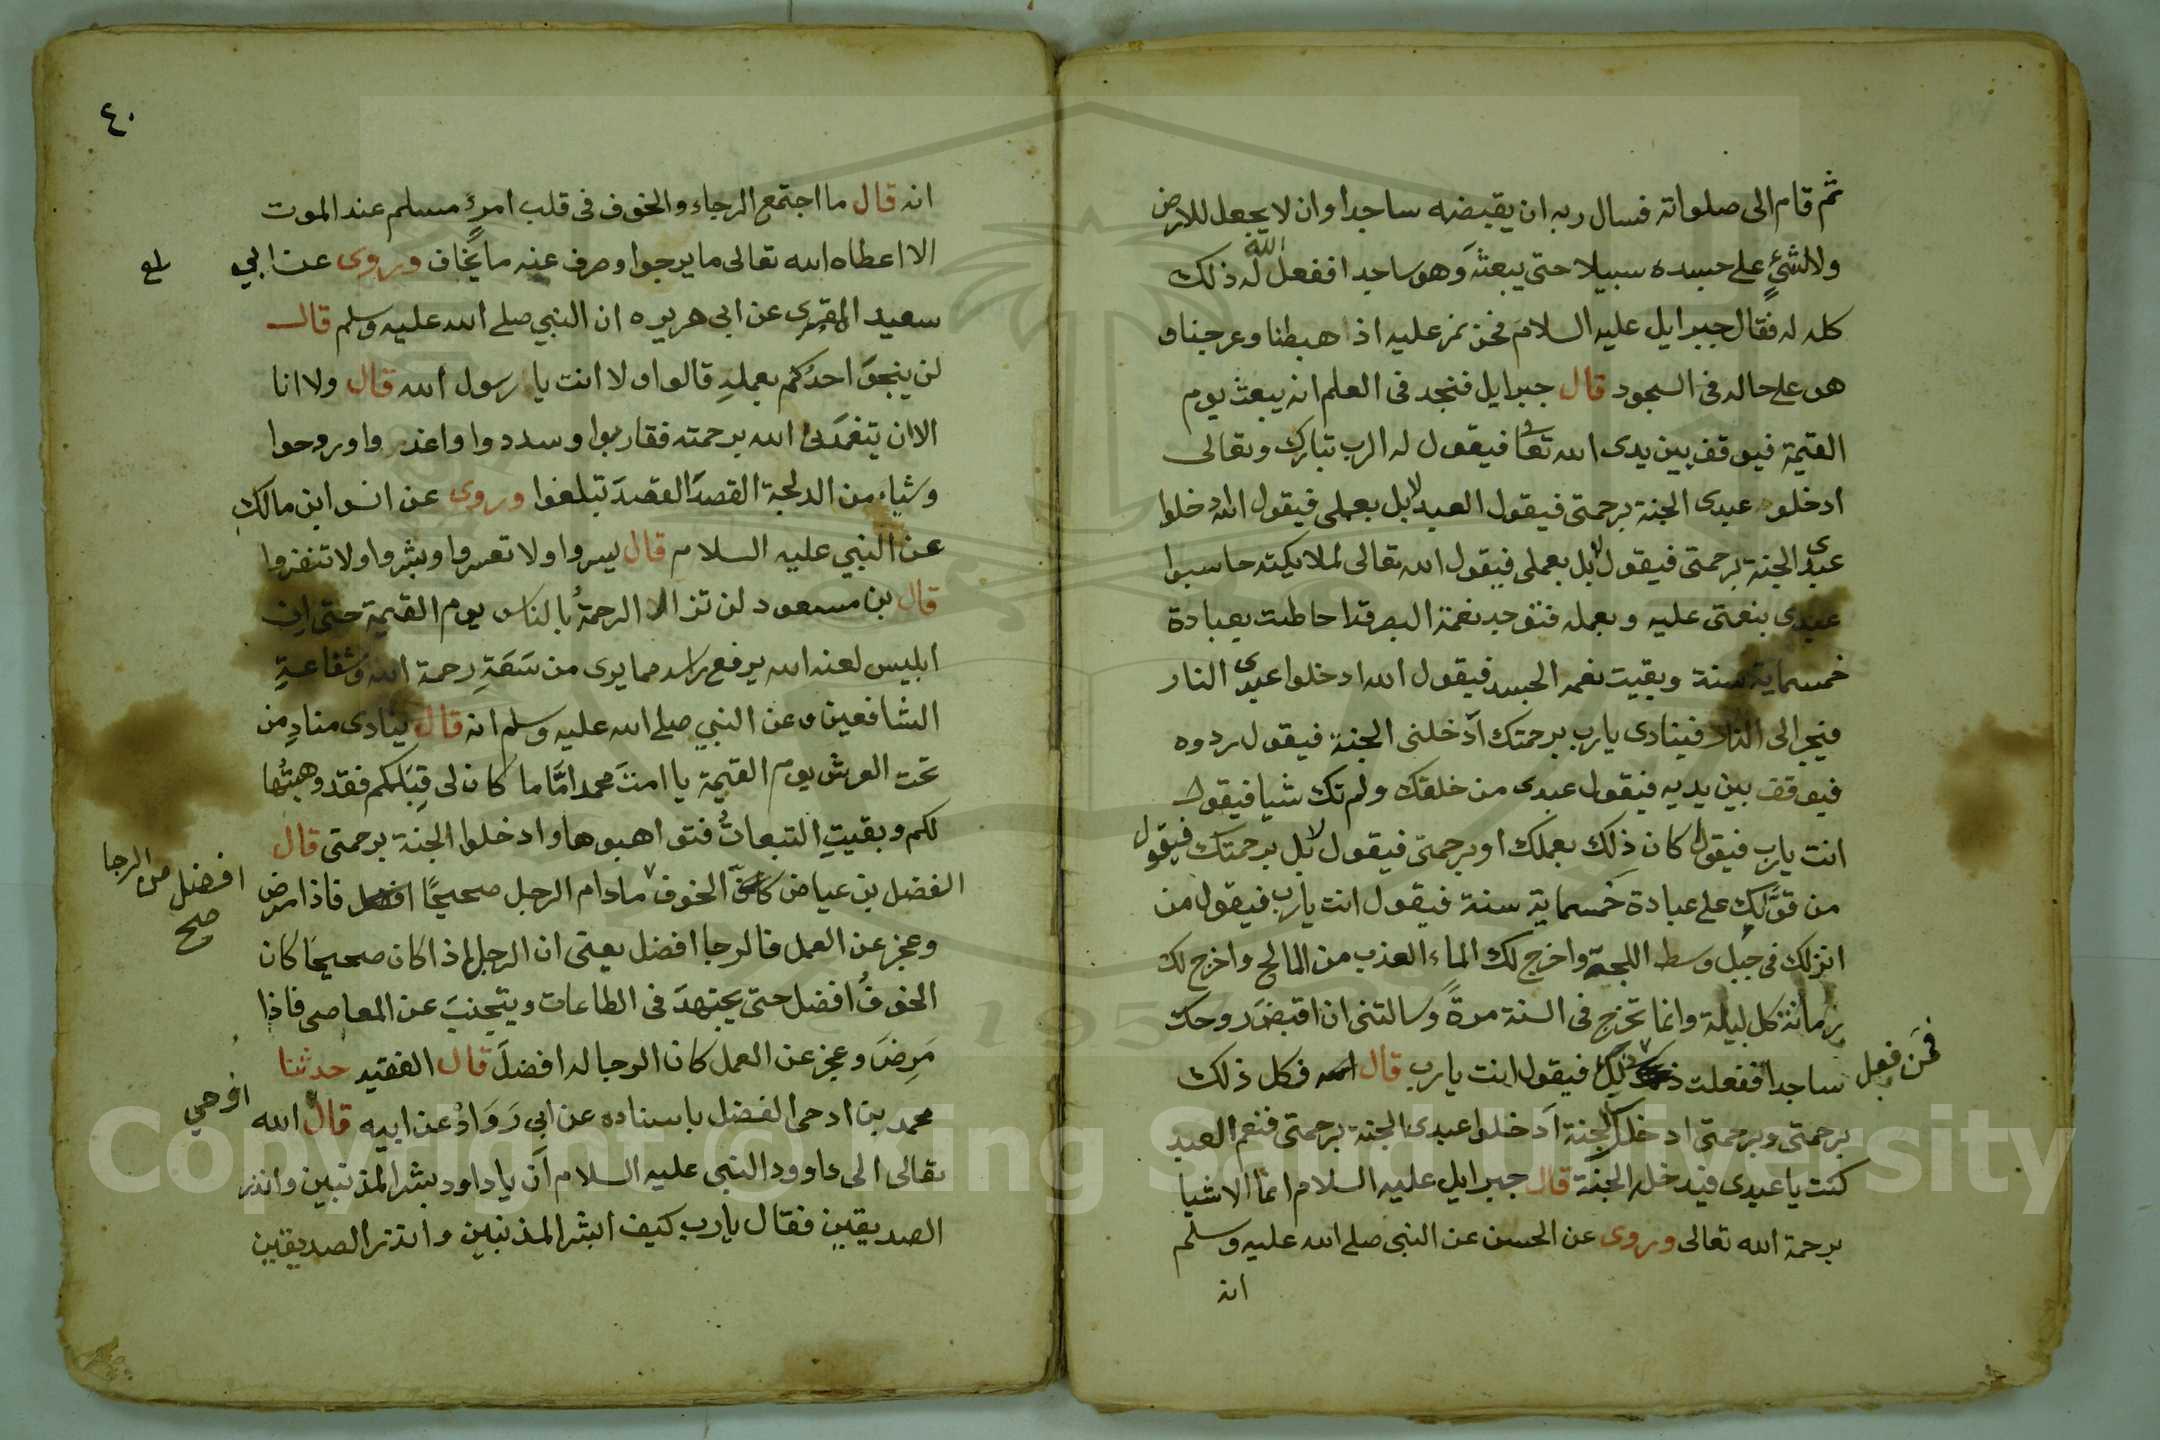 ثم قام الى صلواته فسال ربه ان يقبضه ساجدا وان لا يجعل للارض
ولا لشئ على جسده سبيلا حتى يبعثه وهو ساجدا ففعل الله له ذلك
كله له فقال جبرايل عليه السلام فنحن نمر عليه اذا هبطنا وعرجنا و
هو على حاله فى السجود قال جبرايل فنجد فى العلم انه يبعث يوم
القيمة فيوقف بين يدى الله تعا فيقول له الرب تبارك وتعالى
ادخلو عبدى الجنة برحمتى فيقول العبد لا بل بعملى فيقول الله ادخلوا
عبدى الجنة برحمتى فيقول لا بل بعملى فيقول الله تعالى لملايكته حاسبوا
عبدى بنعمتى عليه وبعمله فتوجد نعمة البصر قد احاطت بعبادة
خمسماية سنة وبقيت نعمه الجسد فيقول الله ادخلوا عبدى النار
فيجر الى النار فينادى يا رب برحمتك ادخلنى الجنة فيقول ردوه
فيوقف بين يديه فيقول عبدى من خلقك ولم تك شيا فيقول
انت يارب فيقول كان ذلك بعملك او برحمتى فيقول لا بل برحمتك فيقول
من قوّلك على عبادة خمسماية سنة فيقول انت يارب فيقول من
انزلك فى جبل وسط اللجة واخرج لك الماء العذب من المالح واخرج لك
رمانة كل ليلة وانما تخرج فى السنة مرةً وسالتنى ان اقبض روحك
ساجدا ففعلت ذلك فيقول انت يارب قال الله فكل ذلك
فمن فعل
برحمتى وبرحمتى ادخلك الجنة ادخلوا عبدى الجنة برحمتى فنعم العبد
كنت يا عبدى فيدخله الجنة قال جبرايل عليه السلام انما الاشيا
برحمة الله تعالى وروى عن الحسن عن النبى صلى الله عليه وسلم
انه
٤٠
انه قال ما اجتمع الرجاء والخوف فى قلب امرئ مسلم عند الموت
الا اعطاه الله تعالى ما يرجوا وصرف عنه ما يخاف وروى عن ابي
سعيد المقبرى عن ابى هريره ان النبي صلى الله عليه وسلم قال
لن ينجوَ احدُكم بعملهِ قالوا ولا انت يا رسول الله قال ولا انا
الا ان يتغمدنى الله برحمته فقاربوا وسددوا واغدوا وروحوا
وشياء من الدلجة القصدَ القصدَ تبلغوا وروى عن انس ابن مالك
عن النبي عليه السلام قال يسروا ولا تعسروا وبشروا ولا تنفروا
قال بن مسعود لن تزال الرحمةُ بالناس يوم القيمة حتى ان
ابليس لعنه الله يرفع راسه مما يرى من سَعَةِ رحمة الله وشفاعةِ
الشافعين وعن النبي صلى الله عليه وسلم انه قال ينادى منادٍ من
تحت العرش يوم القيمة يا امتَ محمد امَّا ما كان لى قِبَلكم فقد وهبتُها
لكم وبقيتِ التبعاتُ فتواهبوها وادخلوا الجنة برحمتى قال
الفضل بن عياض كان الخوف ما دام الرجل صحيحًا افضل فاذا مرض
افضل من الرجا
صح
وعجز عن العمل فالرجا افضل يعنى ان الرجل اذا كان صحيحًا كان
الخوفُ افضل حتى يجتهدَ فى الطاعات ويتجنبَ عن المعاصى فاذا
مَرِضَ وعجز عن العمل كان الرجا له افضلَ قال الفقيه حدثنا
محمد بن ادحى الفضل باسناده عن ابى رَوَادُ عن ابيه قال الله
اوحي
تعالى الى داوود النبى عليه السلام اَن يا داود بشر المذنبين وانذر
الصديقين فقال يارب كيف ابشر المذنبين وانذر الصديقين
Copyright © King Saud University
1957